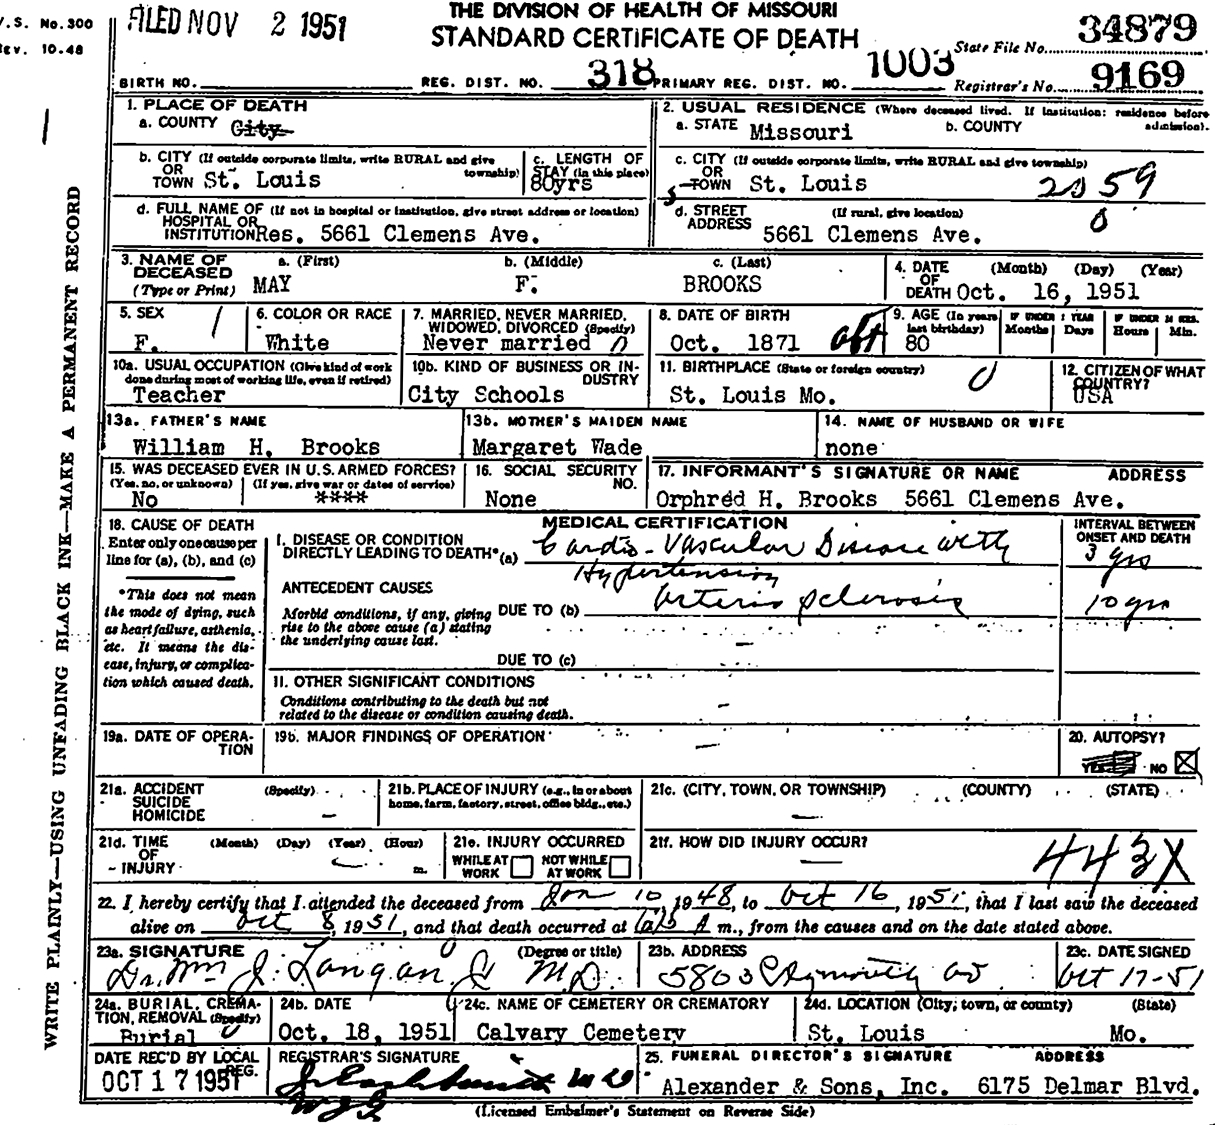 V.S. No. 300
Rev. 10-48
FILED NOV 2 1951
THE DIVISION OF HEALTH OF MISSOURI
STANDARD CERTIFICATE OF DEATH
State File No. 34879
BIRTH NO. REG. DIST. NO. 318 PRIMARY REG. DIST. NO. 1003 Registrar's No. 9169
WRITE PLAINLY—USING UNFADING BLACK INK—MAKE A PERMANENT RECORD
1. PLACE OF DEATH
a. COUNTY City
2. USUAL RESIDENCE (Where deceased lived. If institution: residence before admission).
a. STATE Missouri b. COUNTY
b. CITY (If outside corporate limits, write RURAL and give township)
OR TOWN St. Louis
c. LENGTH OF STAY (in this place) 80yrs
c. CITY (If outside corporate limits, write RURAL and give township)
OR TOWN St. Louis 2059
d. FULL NAME OF (If not in hospital or institution, give street address or location)
HOSPITAL OR INSTITUTION Res. 5661 Clemens Ave.
d. STREET ADDRESS (If rural, give location) 0
5661 Clemens Ave.
3. NAME OF DECEASED (Type or Print) a. (First) b. (Middle) c. (Last)
MAY F. BROOKS
4. DATE OF DEATH (Month) (Day) (Year)
Oct. 16, 1951
5. SEX F. 1
6. COLOR OR RACE White
7. MARRIED, NEVER MARRIED, WIDOWED, DIVORCED (Specify) Never married 0
8. DATE OF BIRTH Oct. 1871 abt
9. AGE (In years last birthday) 80
IF UNDER 1 YEAR Months Days
IF UNDER 24 HRS. Hours Min.
10a. USUAL OCCUPATION (Give kind of work done during most of working life, even if retired)
Teacher
10b. KIND OF BUSINESS OR INDUSTRY
City Schools
11. BIRTHPLACE (State or foreign country) 0
St. Louis Mo.
12. CITIZEN OF WHAT COUNTRY?
USA
13a. FATHER'S NAME
William H. Brooks
13b. MOTHER'S MAIDEN NAME
Margaret Wade
14. NAME OF HUSBAND OR WIFE
none
15. WAS DECEASED EVER IN U.S. ARMED FORCES?
(Yes, no, or unknown) (If yes, give war or dates of service)
No ****
16. SOCIAL SECURITY NO.
None
17. INFORMANT'S SIGNATURE OR NAME ADDRESS
Orphred H. Brooks 5661 Clemens Ave.
18. CAUSE OF DEATH
Enter only one cause per line for (a), (b), and (c)
*This does not mean the mode of dying, such as heart failure, asthenia, etc. It means the disease, injury, or complication which caused death.
MEDICAL CERTIFICATION
INTERVAL BETWEEN ONSET AND DEATH
I. DISEASE OR CONDITION DIRECTLY LEADING TO DEATH* (a) Cardio-Vascular Disease with Hypertension 3 yrs
ANTECEDENT CAUSES
Morbid conditions, if any, giving rise to the above cause (a) stating the underlying cause last.
DUE TO (b) Arterio sclerosis 10 yrs
DUE TO (c) —
II. OTHER SIGNIFICANT CONDITIONS
Conditions contributing to the death but not related to the disease or condition causing death. —
19a. DATE OF OPERATION
19b. MAJOR FINDINGS OF OPERATION —
20. AUTOPSY?
YES NO X
21a. ACCIDENT SUICIDE HOMICIDE (Specify) —
21b. PLACE OF INJURY (e.g., in or about home, farm, factory, street, office bldg., etc.)
21c. (CITY, TOWN, OR TOWNSHIP) (COUNTY) (STATE)
—
21d. TIME OF INJURY (Month) (Day) (Year) (Hour) m.
21e. INJURY OCCURRED
WHILE AT WORK NOT WHILE AT WORK
21f. HOW DID INJURY OCCUR?
— 443X
22. I hereby certify that I attended the deceased from Jan 10, 1948, to Oct 16, 1951, that I last saw the deceased
alive on Oct 8, 1951, and that death occurred at A m., from the causes and on the date stated above.
23a. SIGNATURE (Degree or title)
Dr. Wm J. Langan Jr M.D.
23b. ADDRESS
5803 Plymouth av
23c. DATE SIGNED
Oct 17-51
24a. BURIAL, CREMATION, REMOVAL (Specify)
Burial
24b. DATE
Oct. 18, 1951
24c. NAME OF CEMETERY OR CREMATORY
Calvary Cemetery
24d. LOCATION (City, town, or county) (State)
St. Louis Mo.
DATE REC'D BY LOCAL REG.
OCT 17 1951
REGISTRAR'S SIGNATURE
25. FUNERAL DIRECTOR'S SIGNATURE ADDRESS
Alexander & Sons, Inc. 6175 Delmar Blvd.
(Licensed Embalmer's Statement on Reverse Side)